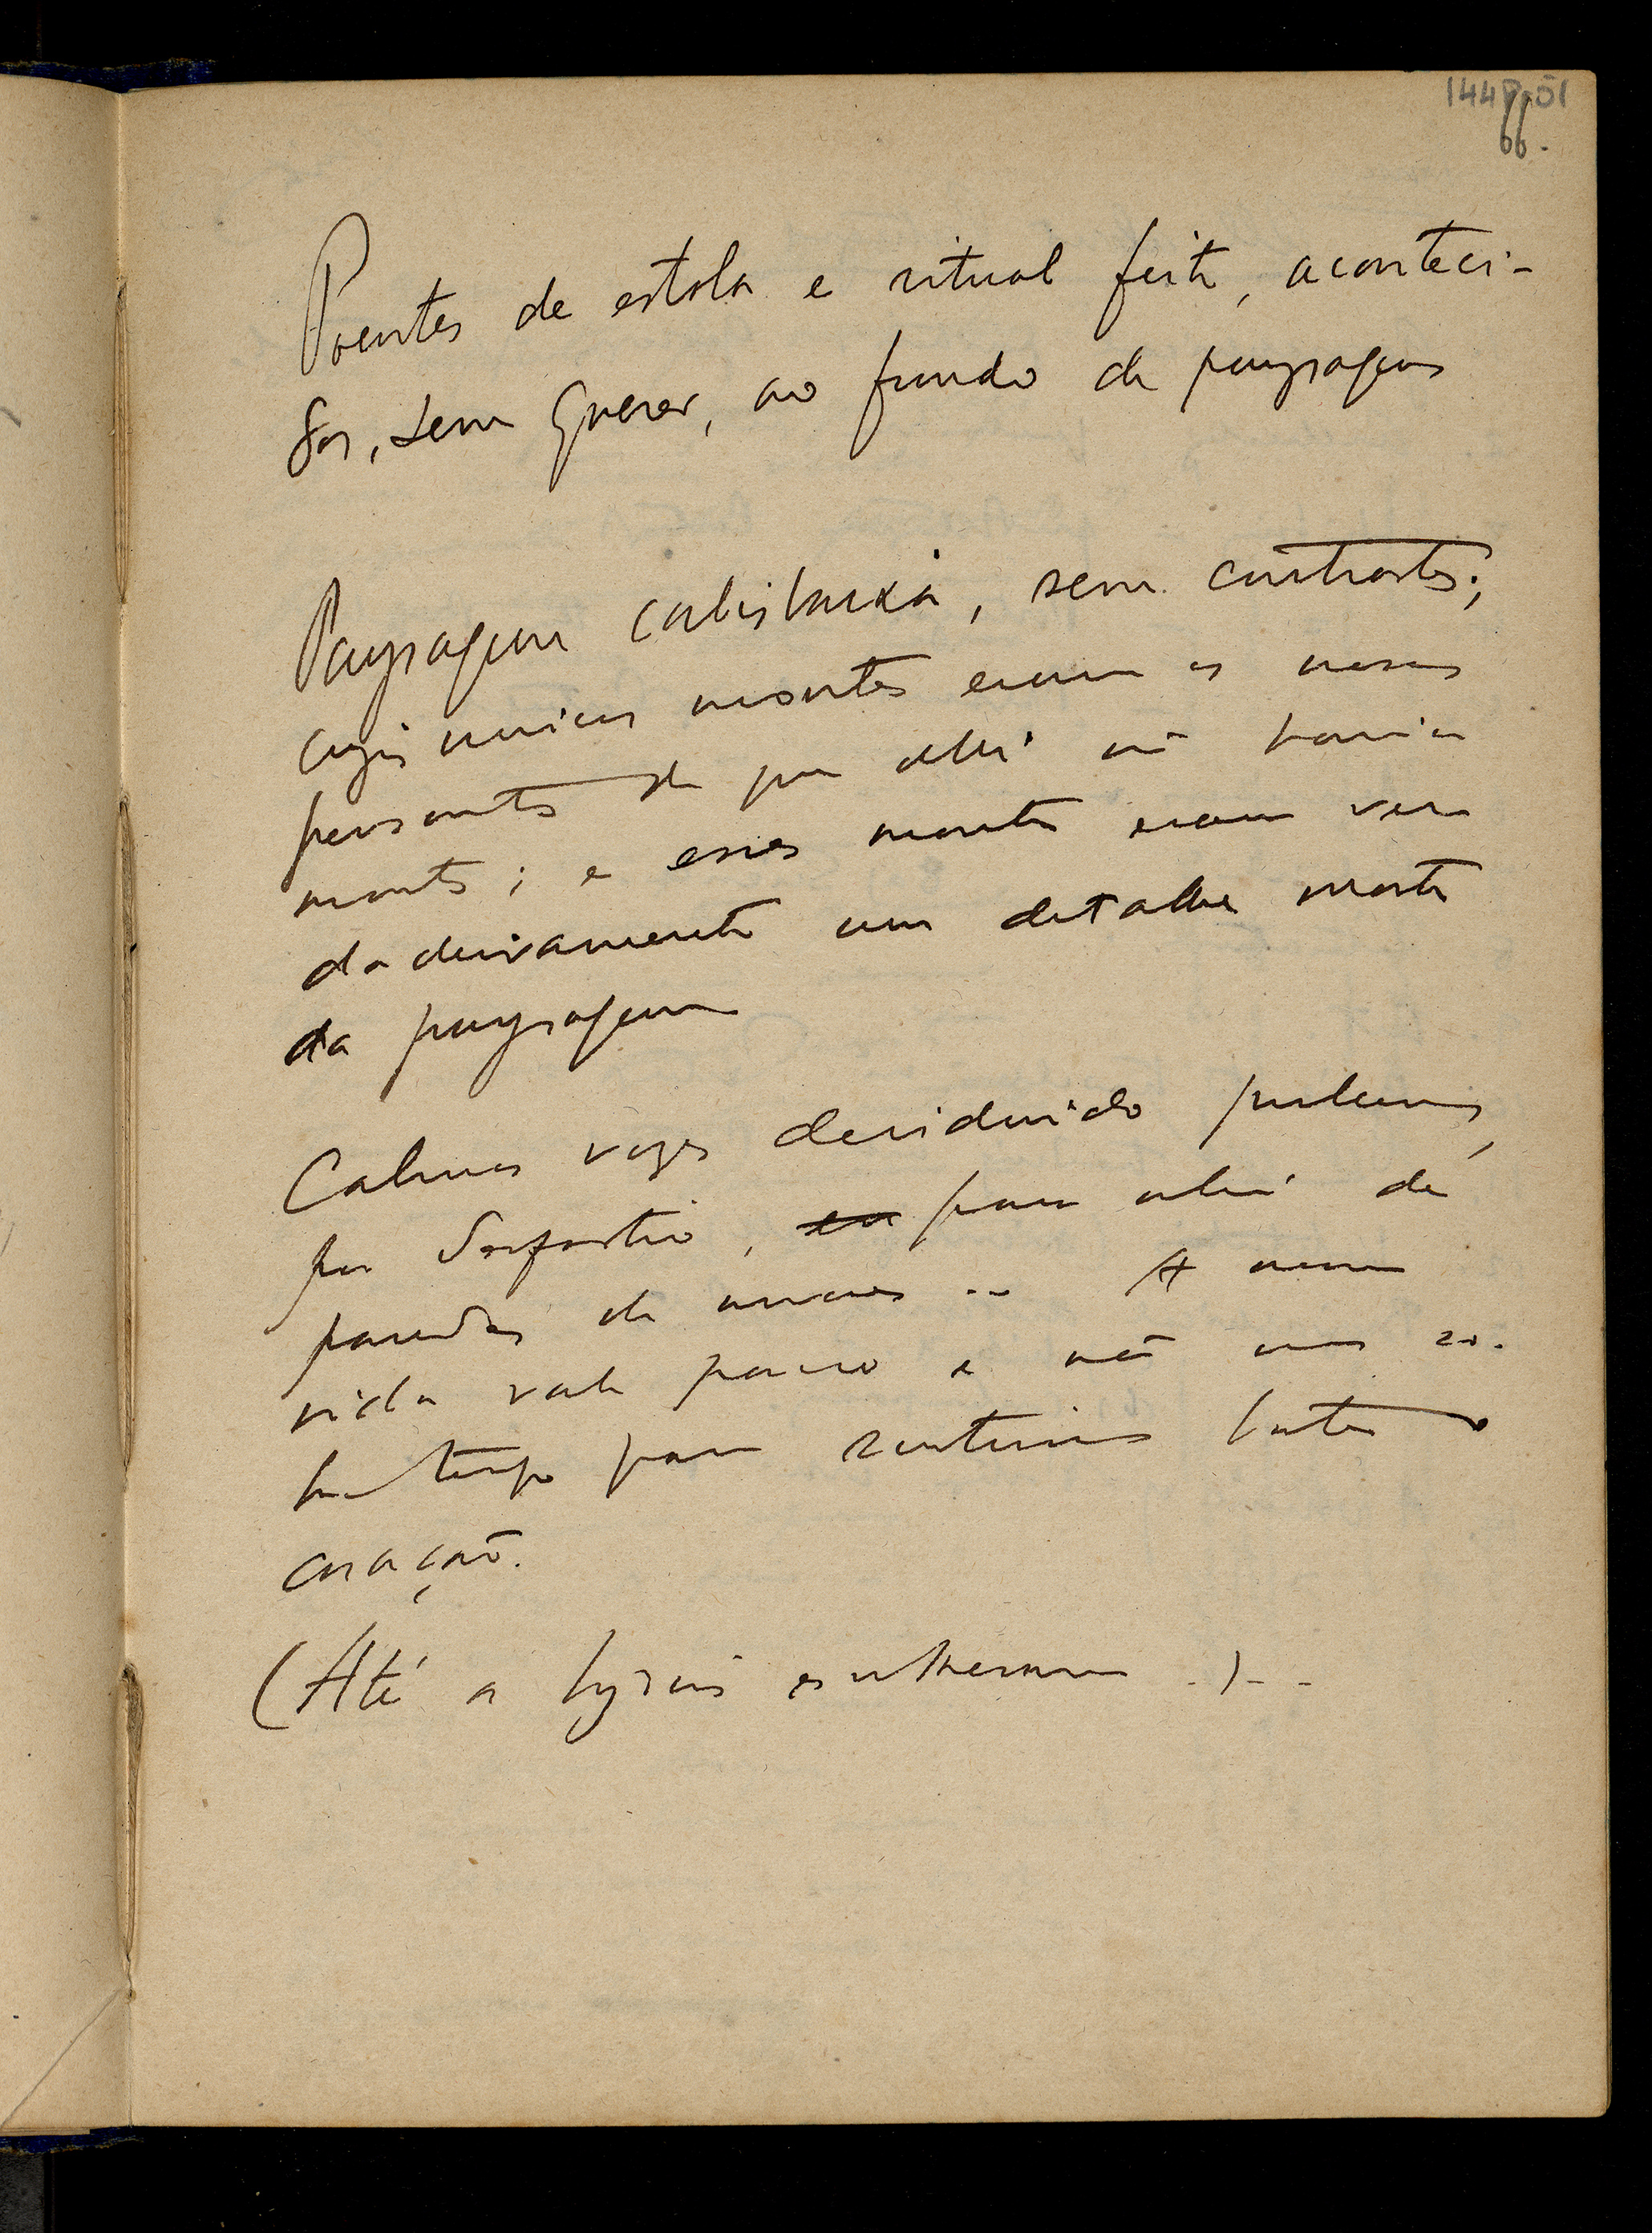 144P-51
66.
Poentes de estola e ritual feito, aconteci-
dos, sem querer, ao fundo de paysagens
Paysagem cabisbaixa, sem contrastes;
cujos unicos montes eram os nossos
pensamentos de que alli não havia
montes; e esses montes eram ver
dadeiramente um detalhe morto
da paysagem
Calmas vozes
por, para alem de
paredes de A nossa
vida vale pouco e não nos so-
bra tempo para sentirmos bater o
coração.
(Até a ...)..